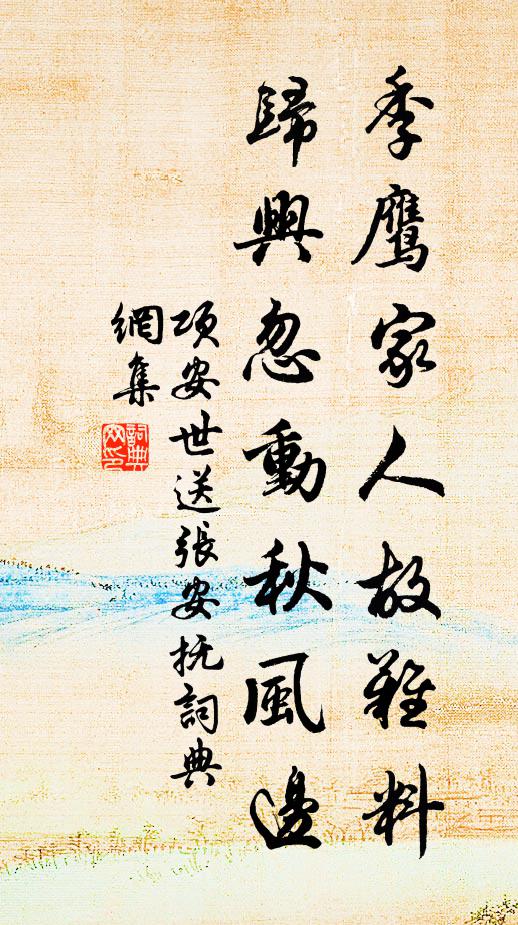 季鹰家人故難料
歸興忽動秋風邊
項安世送張安抚詞典
網集
詞典